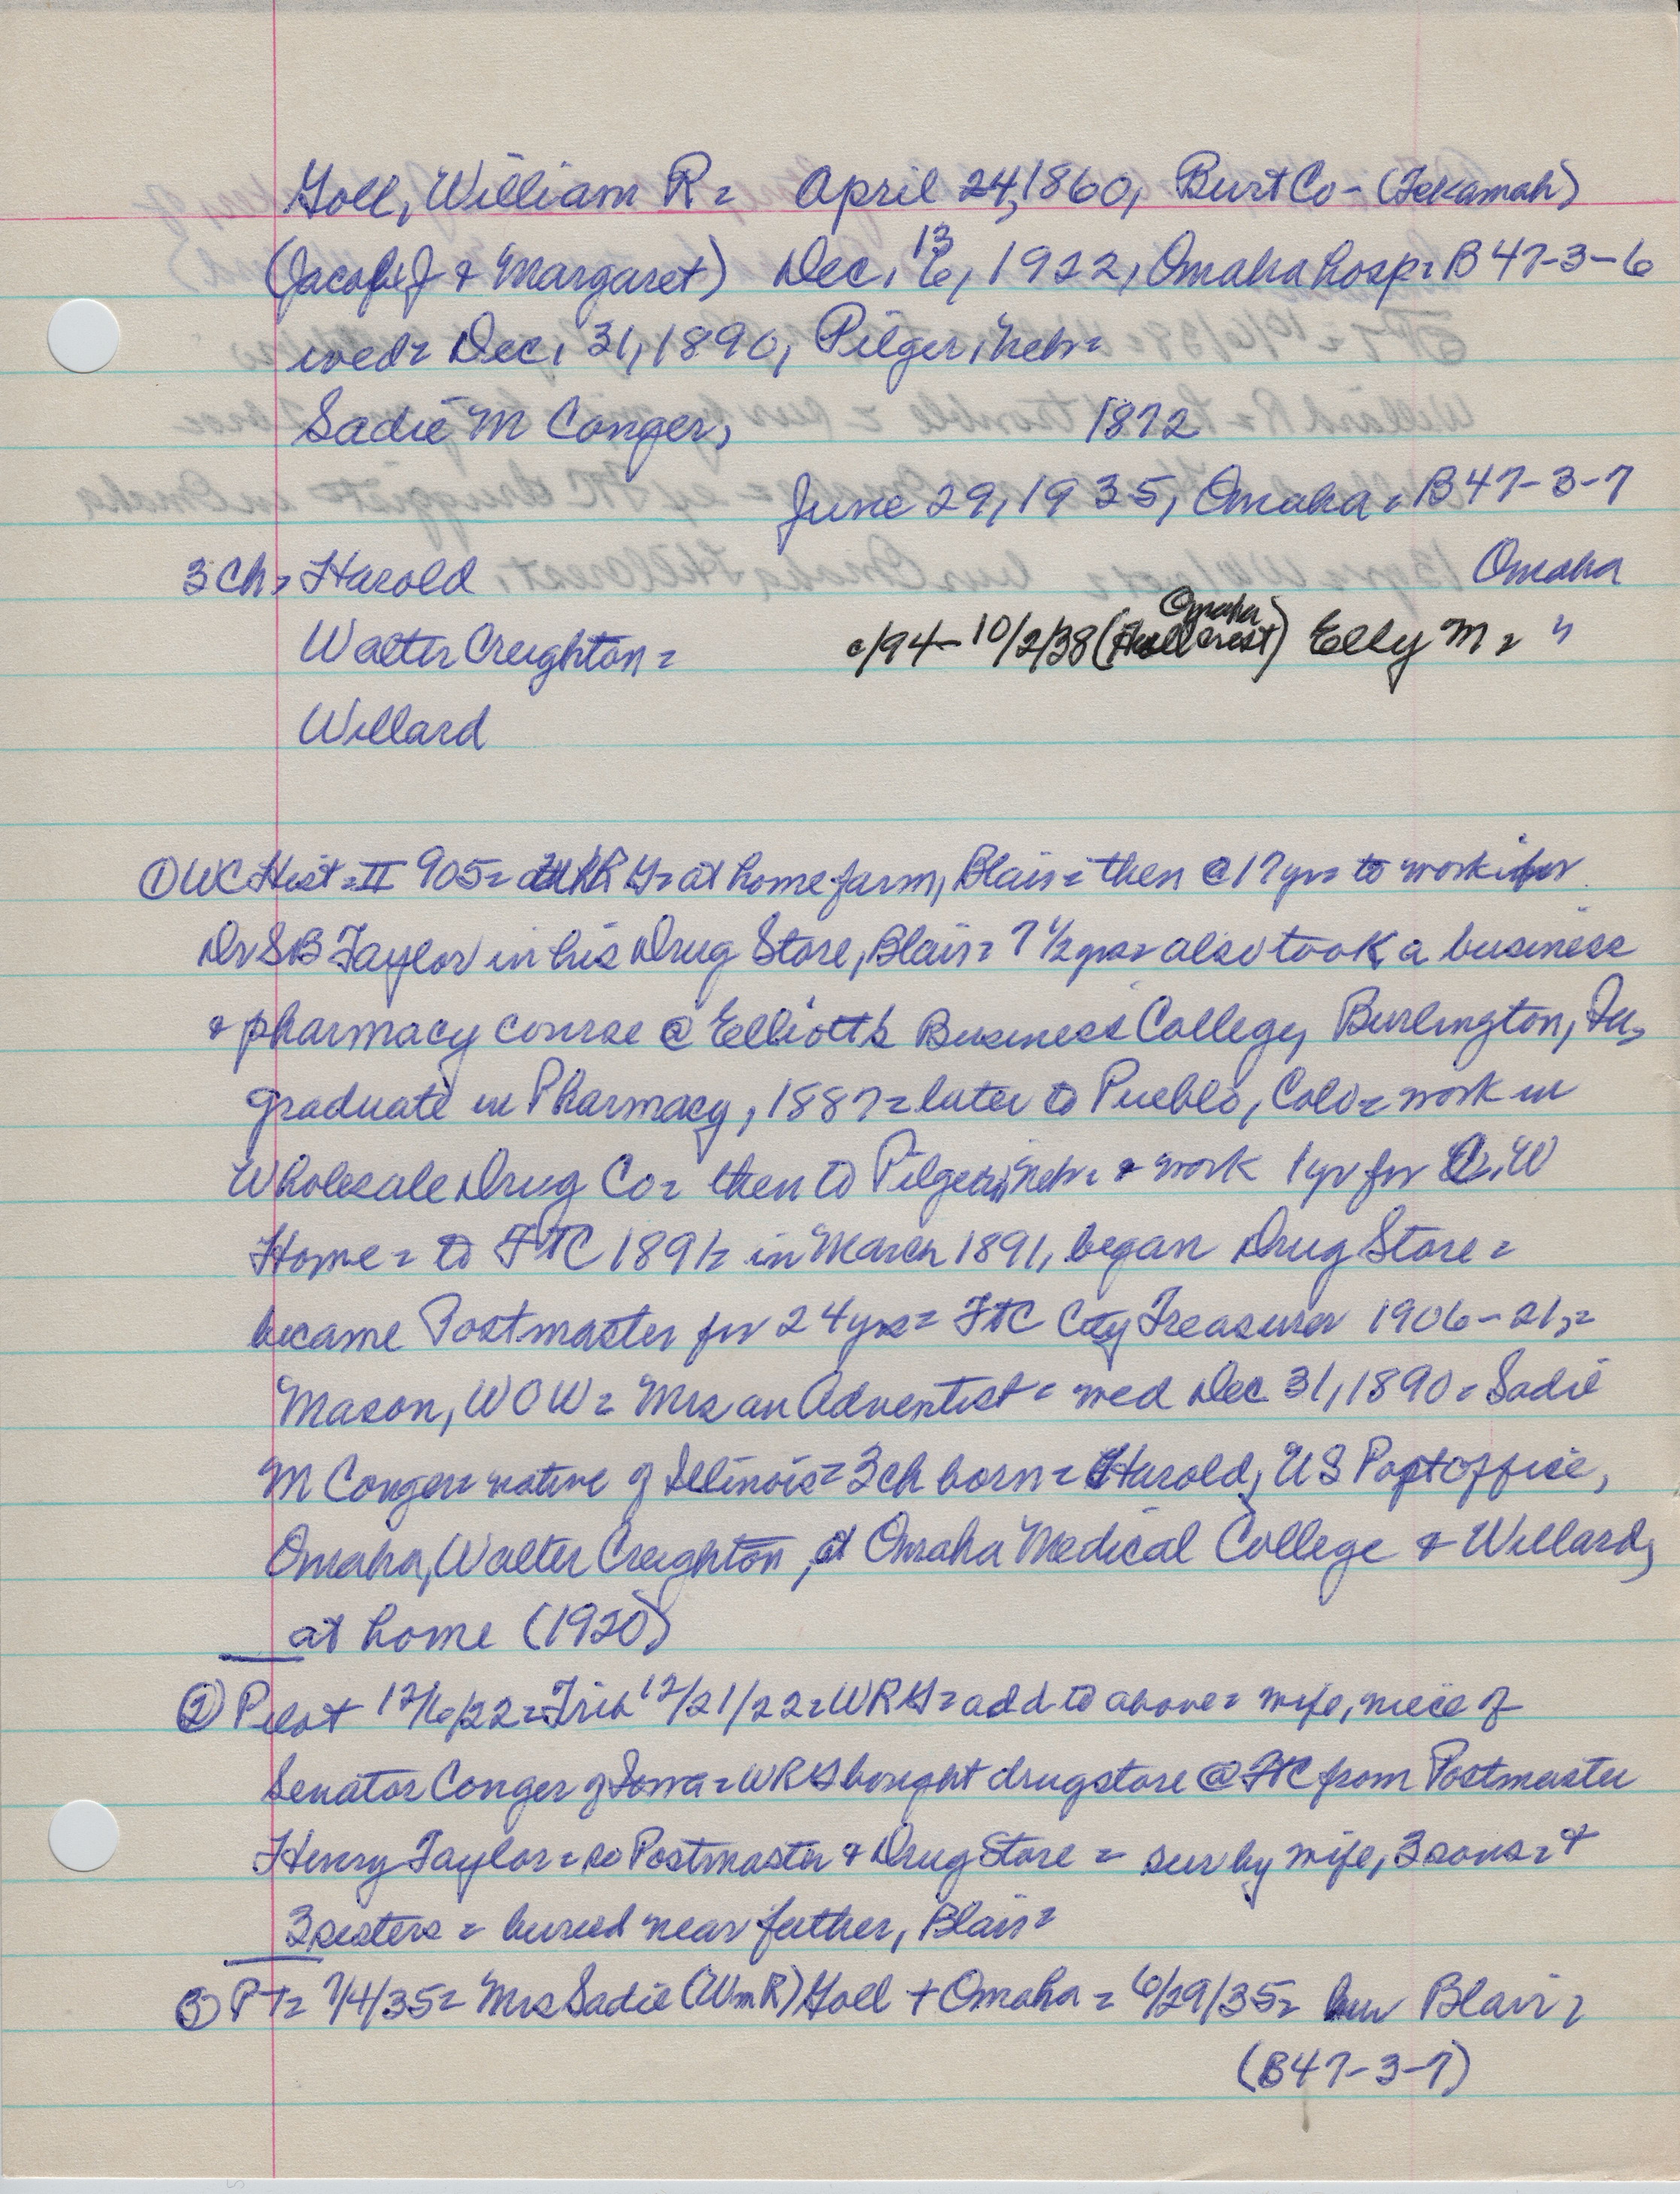 Goll, William R = April 24, 1860, Burt Co - (Tekamah)
(Jacob J & Margaret) Dec. 13, 1922, Omaha hosp = B 47-3-6
wed = Dec. 31, 1890, Pilger, Nebr =
Sadie M Conger, 1872
June 29, 1935, Omaha = B 47-3-7
3 Ch = Harold Omaha
Walter Creighton = c/94 - 10/2/38 (Omaha Hillcrest) Elly M = "
Willard
① WC Hist = II 905 = WR G = at home farm, Blair = then @ 17 yrs to work for
Dr S B Taylor in his Drug Store, Blair = 7 1/2 yrs = also took a business
& pharmacy course @ Elliotts Business College, Burlington, Ia,
graduate in Pharmacy, 1887 = later to Pueblo, Colo = work in
Wholesale Drug Co = then to Pilger, Nebr = & work 1 yr for W
Home = to FTC 1891 = in March 1891, began Drug Store =
became Postmaster for 24 yrs = FTC City Treasurer 1906-21, =
Mason, WOW = Mrs an Adventist = wed Dec 31, 1890 = Sadie
M Conger = native of Illinois = 3 ch born = Harold, US Postoffice,
Omaha, Walter Creighton, at Omaha Medical College & Willard,
at home (1920)
② Pilot 12/6/22 = Trib 12/21/22 = WRG = add to above = wife, niece of
Senator Conger of Iowa = WRG bought drugstore @ FTC from Postmaster
Henry Taylor = so Postmaster & Drug Store = sur by wife, 3 sons = &
3 sisters = buried near father, Blair =
③ PT = 7/4/35 = Mrs Sadie (Wm R) Goll + Omaha = 6/29/35 = bur Blair =
(B47-3-7)